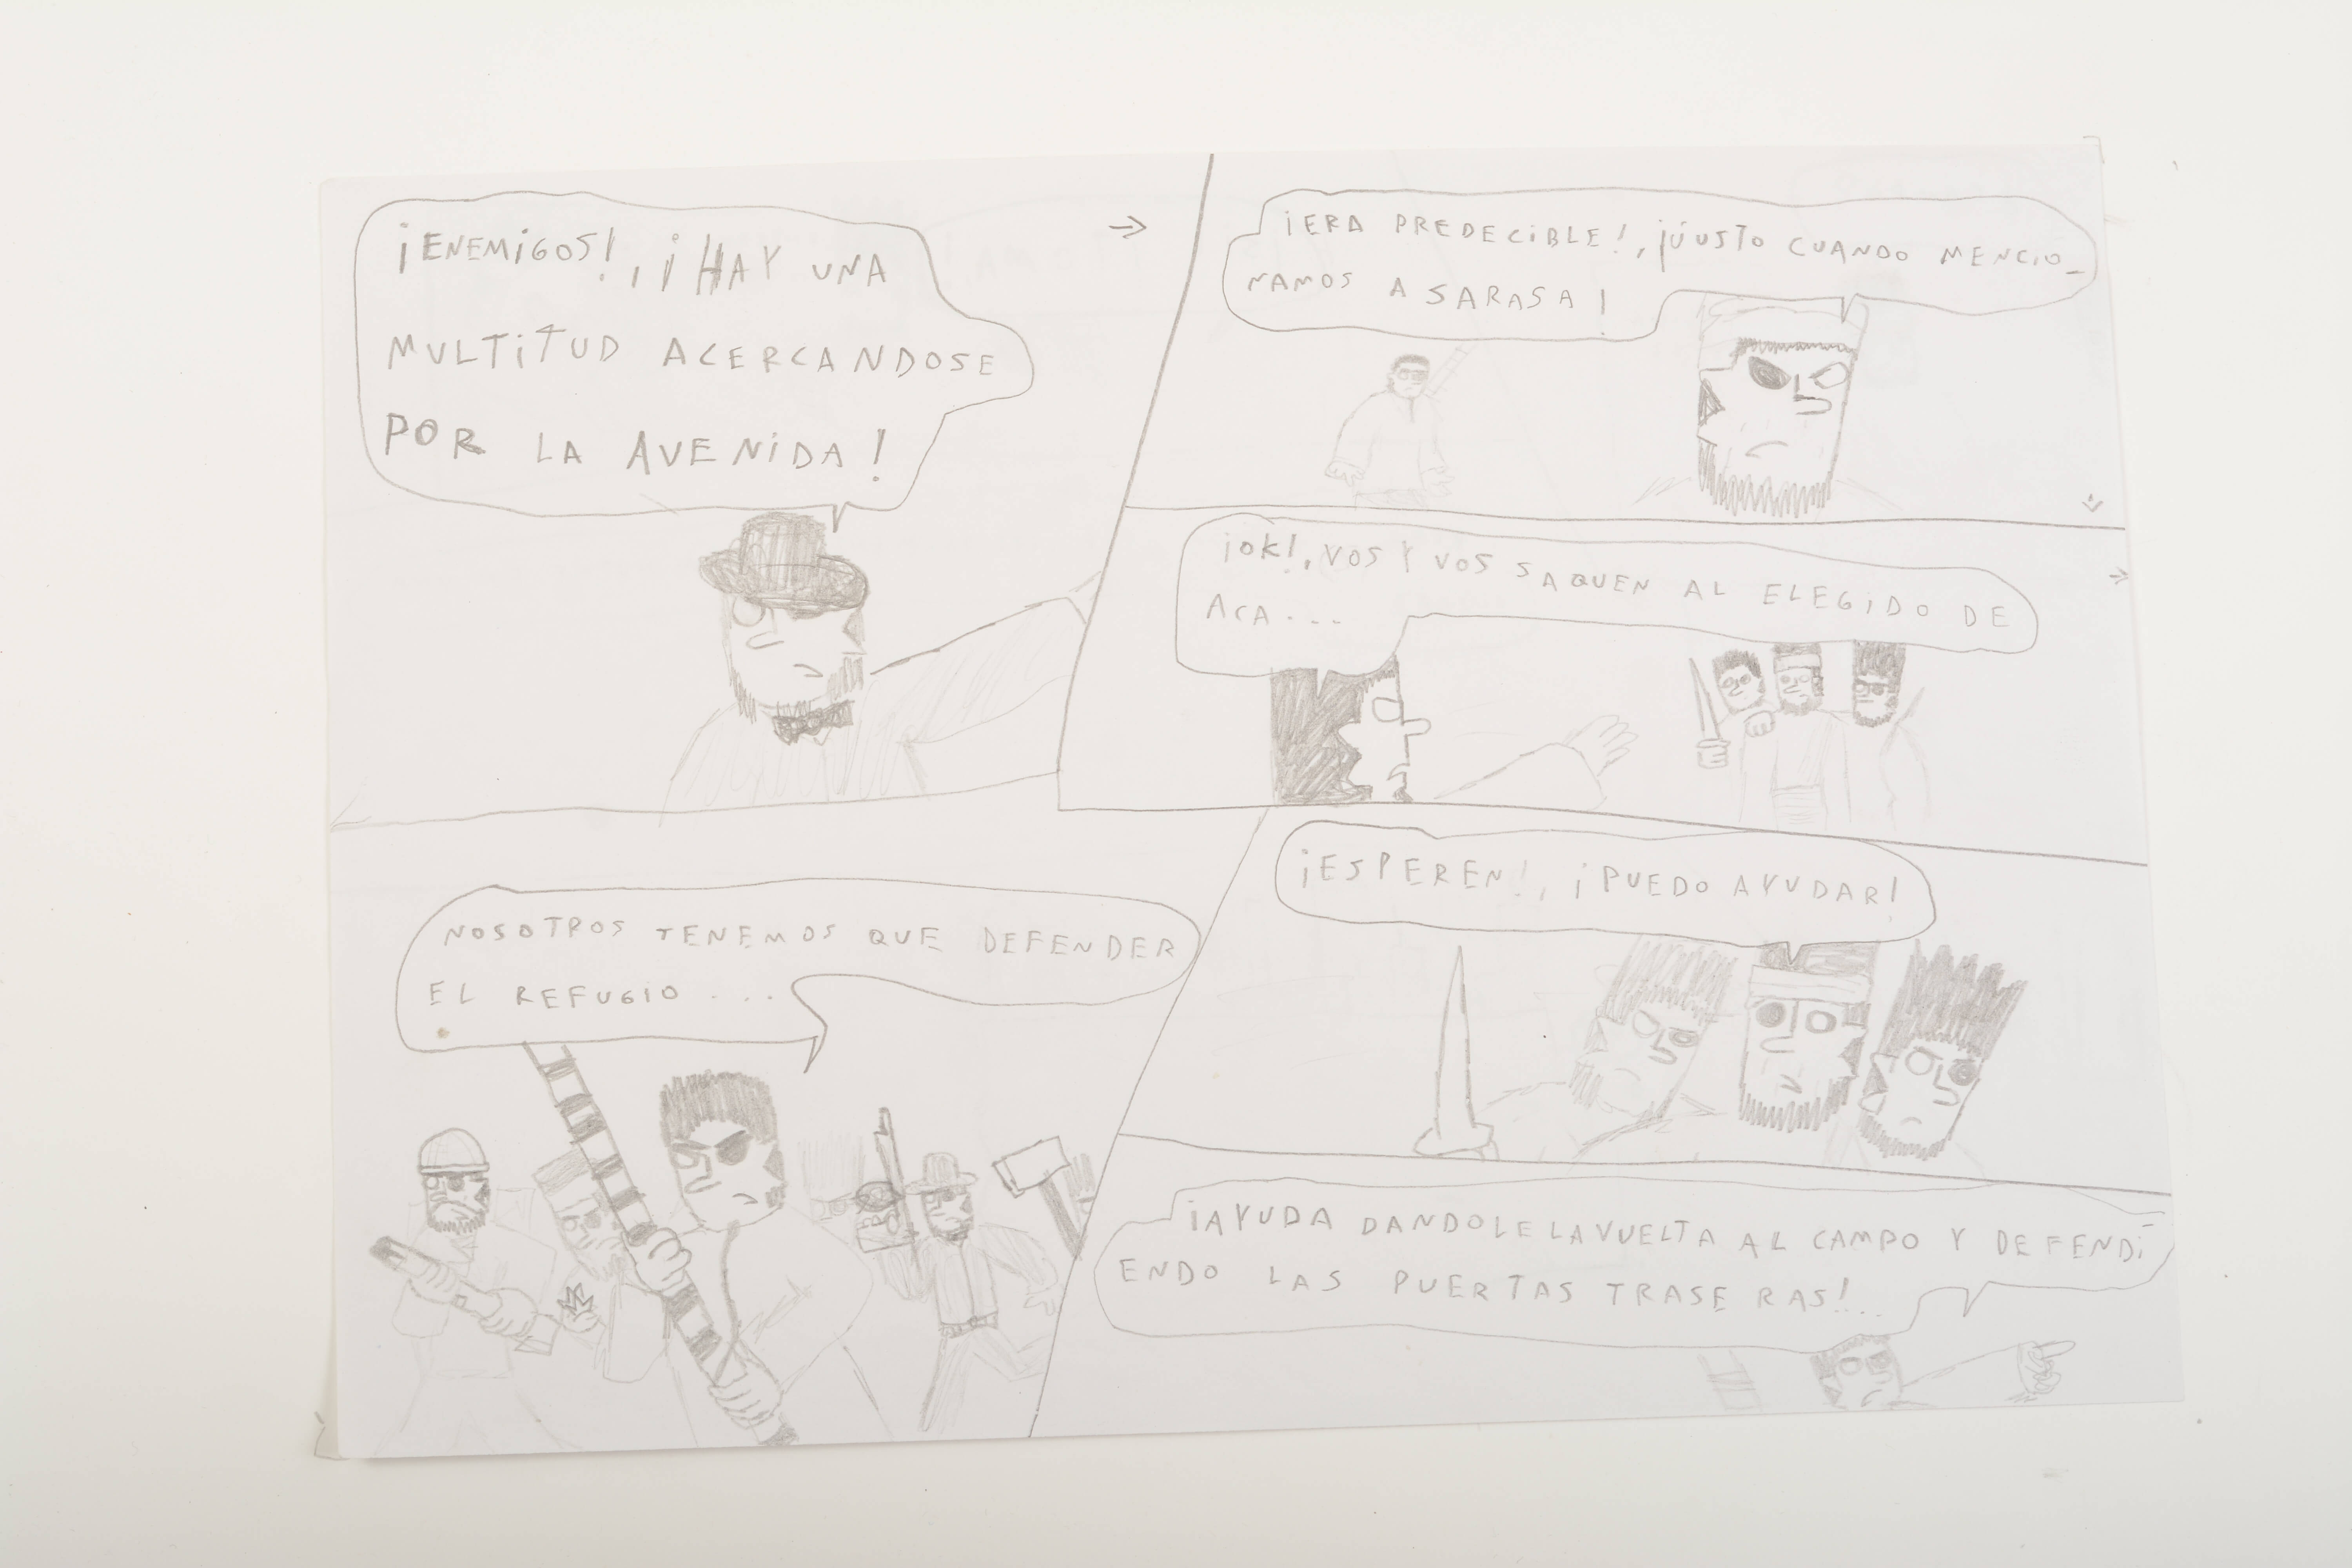 ¡ENEMIGOS!, ¡HAY UNA
MULTITUD ACERCANDOSE
POR LA AVENIDA!
¡ERA PREDECIBLE!, ¡JUSTO CUANDO MENCIO_
NAMOS A SARASA!
¡OK!, VOS Y VOS SAQUEN AL ELEGIDO DE
ACA...
NOSOTROS TENEMOS QUE DEFENDER
EL REFUGIO...
¡ESPEREN!, ¡PUEDO AYUDAR!
¡AYUDA DANDOLE LA VUELTA AL CAMPO Y DEFENDI
ENDO LAS PUERTAS TRASERAS!...